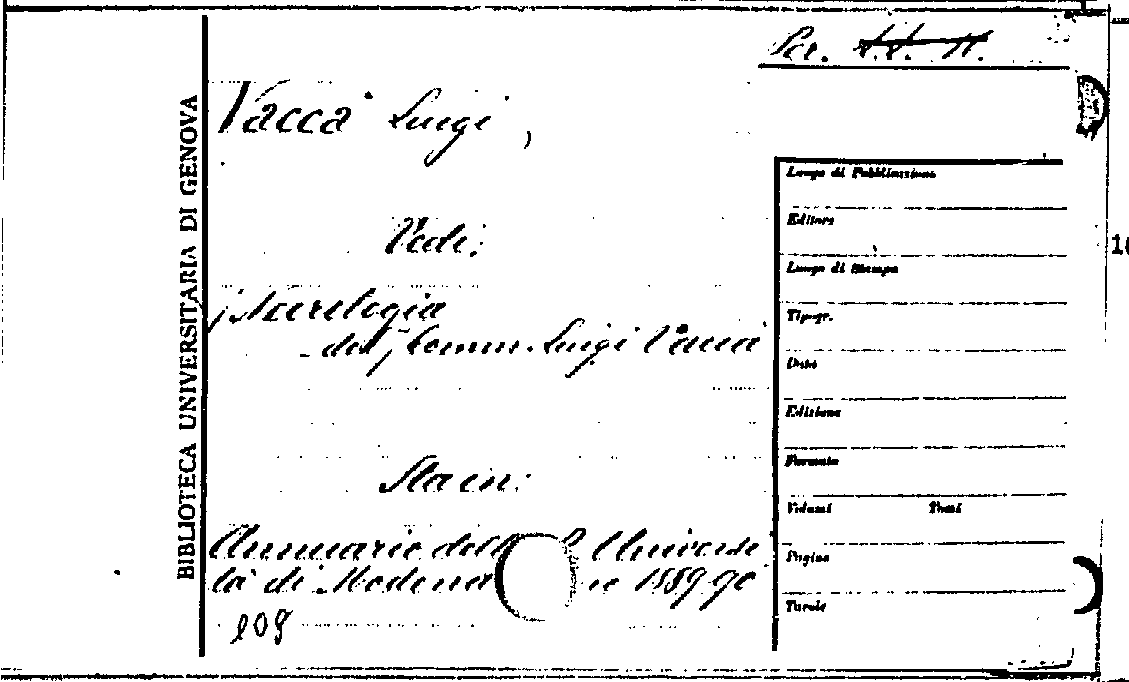 Per. A.A. 11.
BIBLIOTECA UNIVERSITARIA DI GENOVA
Vaccà Luigi,
Vedi:
Necrologia
del Comm. Luigi Vaccà
Sta in:
Annuario della R. Universi
tà di Modena 1889-90
209
Luogo di Pubblicazione
Editore
Luogo di Stampa
Tipogr.
Data
Edizione
Formato
Volumi Tomi
Pagine
Tavole